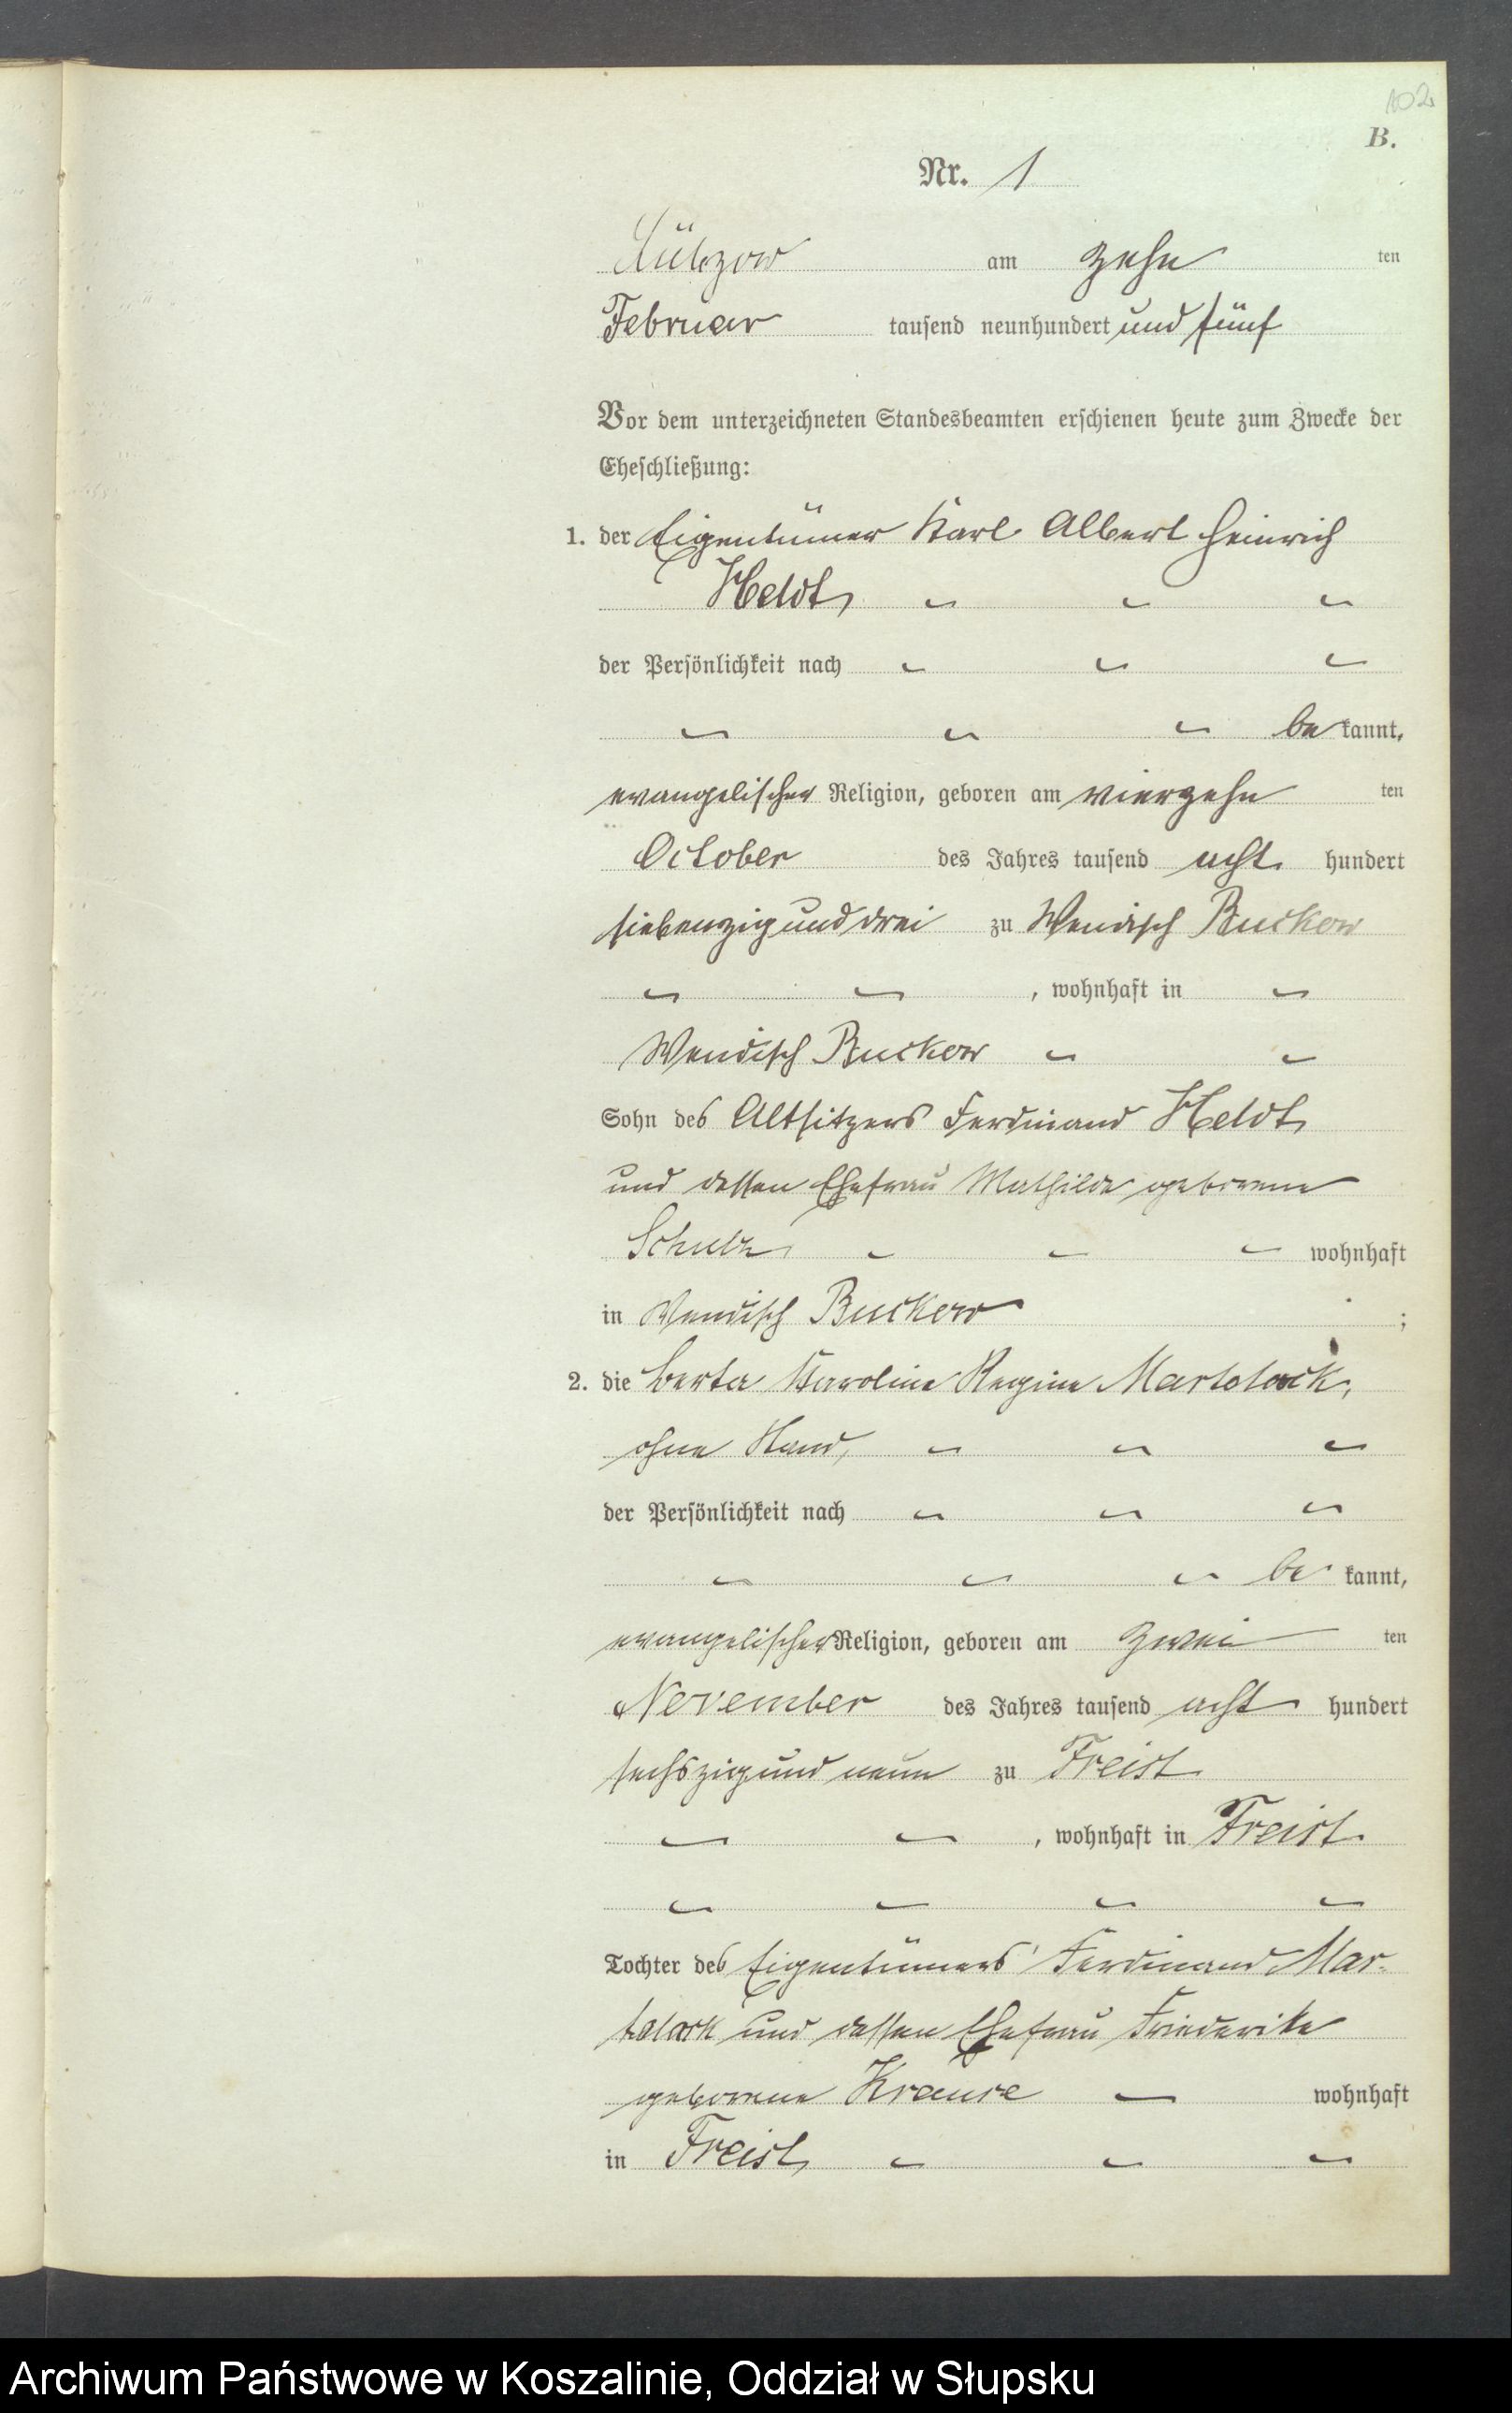 102
B.
Nr. 1
Lübzow am zehn ten
Februar tausend neunhundert und fünf
Vor dem unterzeichneten Standesbeamten erschienen heute zum Zwecke der
Eheschließung:
1. der Eigentümer Karl Albert Heinrich
Heldt,
der Persönlichkeit nach
be kannt,
evangelischer Religion, geboren am vierzehn ten
October des Jahres tausend acht hundert
siebenzig und drei zu Wendisch Buckow
, wohnhaft in
Wendisch Buckow
Sohn des Altsitzers Ferdinand Heldt,
und dessen Ehefrau Mathilde geborene
Schulz, wohnhaft
in Wendisch Buckow ;
2. die Berta Karoline Regine Martolock,
ohne Stand,
der Persönlichkeit nach
be kannt,
evangelischer Religion, geboren am zwei ten
November des Jahres tausend acht hundert
sechszig und neun zu Freist
, wohnhaft in Freist
Tochter des Eigentümers Ferdinand Mar-
tolock und dessen Ehefrau Friederike
geborene Krause wohnhaft
in Freist,
Archiwum Państwowe w Koszalinie, Oddział w Słupsku